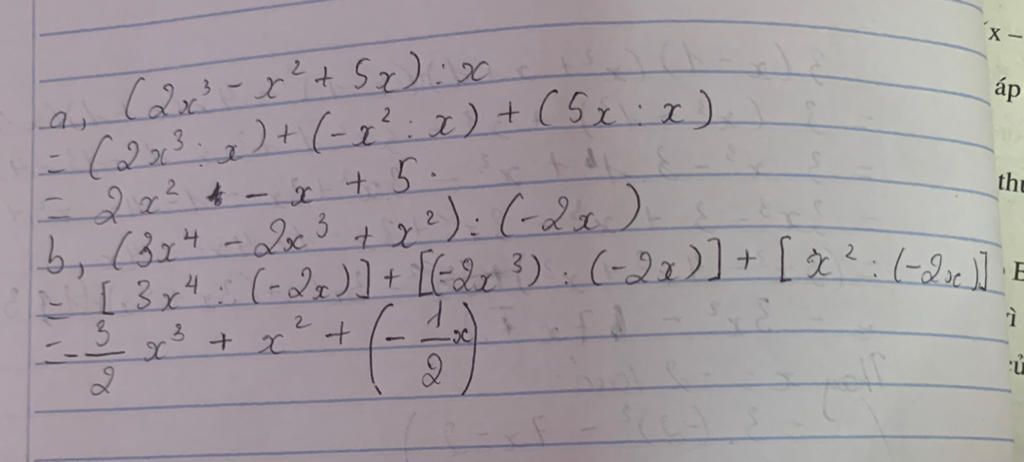 a, (2x³ - x² + 5x) : x
= (2x³ : x) + (-x² : x) + (5x : x)
= 2x² - x + 5.
b, (3x⁴ - 2x³ + x²) : (-2x)
= [3x⁴ : (-2x)] + [(-2x³) : (-2x)] + [x² : (-2x)]
= -3/2 x³ + x² + (-1/2 x)
x –
áp